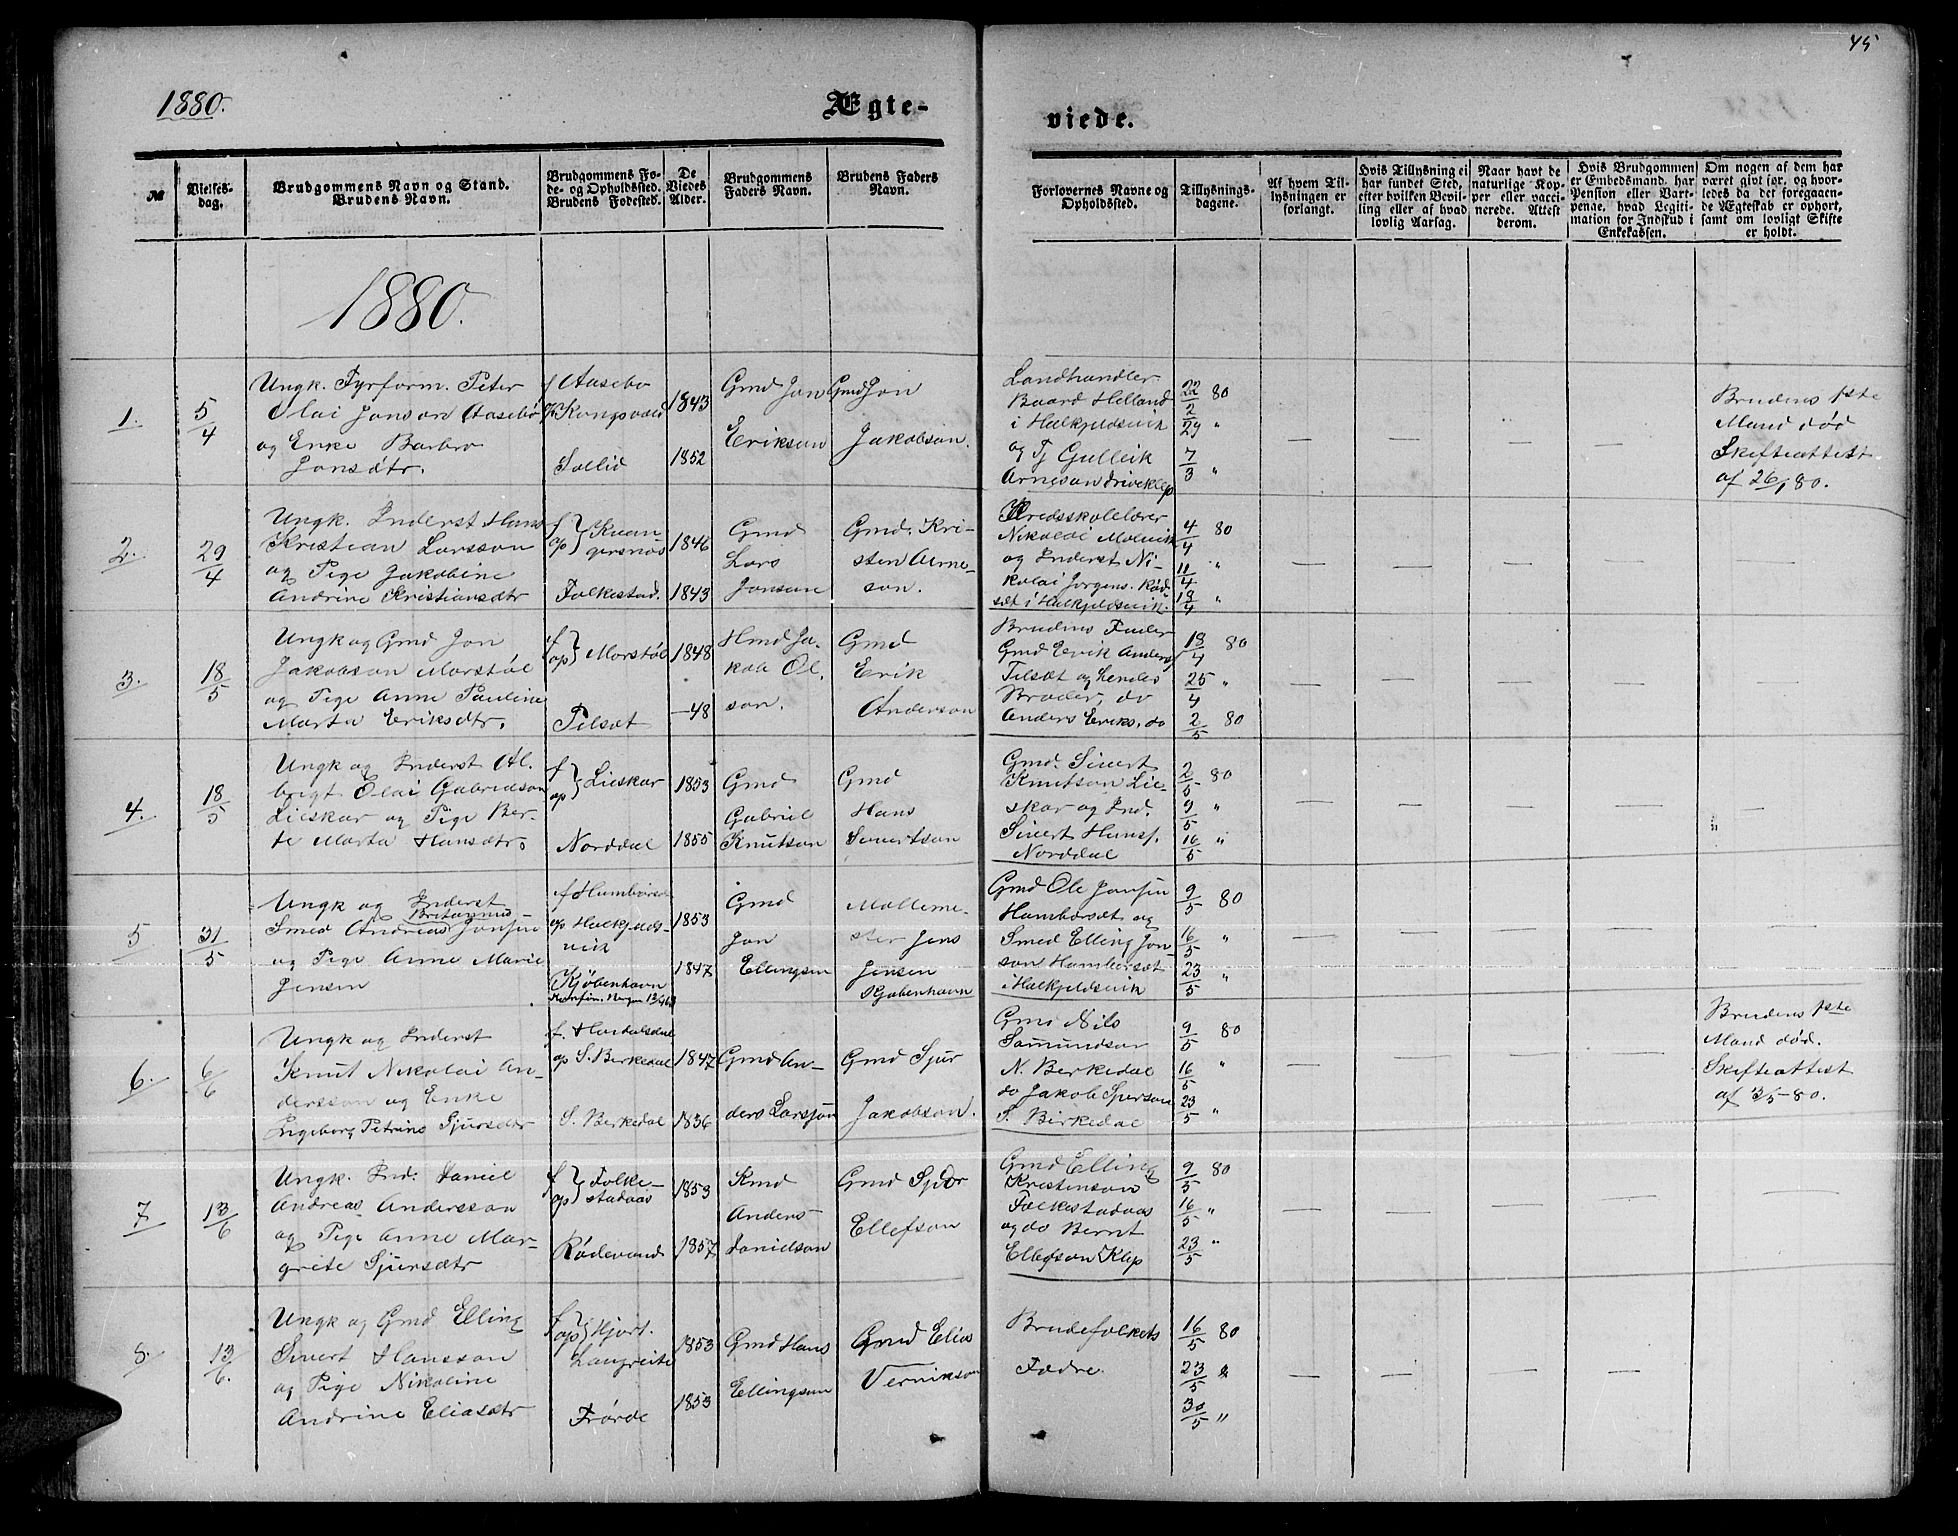 45
1880.
Ægte-
viede.
№
Vielses-
dag.
Brudgommens Navn og Stand.
Brudens Navn.
Brudgommens Fø-
de- og Opholdssted.
Brudens Fødested.
De
Viedes
Alder.
Brudgommens
Faders Navn.
Brudens Faders
Navn.
Forlovernes Navne og
Opholdssted.
Tillysnings-
dagene.
Af hvem Til-
lysningen er
forlangt.
Hvis Tillysning ei
har fundet Sted,
efter hvilken Bevil-
ling eller af hvad
lovlig Aarsag.
Naar havt de
naturlige Kop-
per eller vacci-
nerede. Attest
derom.
Hvis Brudgommen
er Embedsmand, har
Pension eller Vart-
penge, hvad Legiti-
mation for Indskud i
Enkekassen.
Om nogen af dem har
været givt før, og hvor-
ledes da det foregaaen-
de Ægteskab er ophørt,
samt om lovligt Skifte
er holdt.
1880.
1.
5/4
Ungk. Fyrform. Peter
Olai Jonson Aasebø
og Enke Barbro
Jonsdtr.
f Aasebø
op Kongsvold
Sollid
1843
1852
Gmd Jon
Erikson
Gmd Jon
Jakobson.
Landhandler
Baard Helland
i Halkjeldsvik
og Tj Gulleik
Arneson Driveklep
22/2 80
29 "
7/3 "
Brudens 1ste
Mand død
Skifteattest
af 26/1 80.
2.
29/4
Ungk. Inderst Hans
Kristian Larsson
og Pige Jakobine
Andrine Kristiansdtr
f
op } Kvan
gersnæs
Folkestad.
1846
1843
Gmd
Lars
Jonsen
Gmd. Kri-
sten Arne-
son.
Kredsskolelærer
Nikolai Molvik
og Inderst Ni-
kolai Jørgens. Rød
sæt i Halkjeldsvik.
4/4 80
11/4 "
18/4 "
3.
18/5
Ungk og Gmd Jon
Jakobson Morstøl
og Pige Anne Pauline
Marta Eriksdtr.
f
op } Morstøl
Pilsæt
1848
-48
Hmd Ja-
kob Ol.
son.
Gmd
Erik
Anderson
Brudens Fader
Gmd Erik Anders
Pilsæt og hendes
Broder, do
Anders Eriks. do
18/4 80
25/4 "
2/5 80
4.
18/5
Ungk og Inderst Al.
brigt Olai Gabrielson
Lieskar og Pige Ber-
te Marta Hansdtr.
f
op } Lieskar
Norddal
1853
1855
Gmd
Gabriel
Knutson
Gmd
Hans
Sivertson
Gmd. Sivert
Knutson Lie-
skar og Ind.
Sivert Hanss.
Norddal
2/5 80
9/5 "
16/5 "
5
31/5
Ungk og Inderst
Britannus
Smed Andreas Jonsen
og Pige Anne Marie
Jensen
f Hambørsæt
op Halkjelds-
vik
Kjøbenhavn
1853
1847
Gmd
Jon
Ellingsen
Molleme-
ster Jens
Jensen
Kjøbenhavn
Gmd Ole Jonsen
Hambørsæt og
Smed Elling Jon
son Hambørsæt
i Halkjeldsvik
9/5 80
16/5 "
23/5 "
6.
6/6
Ungk og Inderst
Knut Nikolai An-
dersson og Enke
Ingeborg Petrine Sjursdtr
f. Hovdalsdal
op S. Berkedal
S. Berkedal
1847
1836
Gmd An-
ders Larsson
Gmd Sjur
Jakobson.
Gmd Nils
Samundson
N. Berkedal
do Jakob Sjurson
S. Birkedal
9/5 80
16/5 "
23/5 "
Brudens 1ste
Mand død.
Skifteattest
af 3/5-80.
7
13/6
Ungk. Ind. Daniel
Andreas Andersson
og Pige Anne Mar-
grete Sjursdtr
f
op } Folke-
stadaas
Rødevand
1853
1857
Kmd
Anders
Danielson
Gmd Sjur
Ellefson
Gmd Elling
Kristenson
Folkestadaas
og do Bernt
Ellefson Klep
9/5 80
16/5 "
23/5 "
8.
13/6.
Ungk og Gmd Elling
Sivert Hansson
og Pige Nikoline
Andrine Eliasdtr
f
op } Hjort.
Langreite
Frørde
1853
1853
Gmd Hans
Ellingsen
Gmd Elias
Vernikson
Brudefolkets
Fædre.
16/5 80
23/5 "
30/5 "